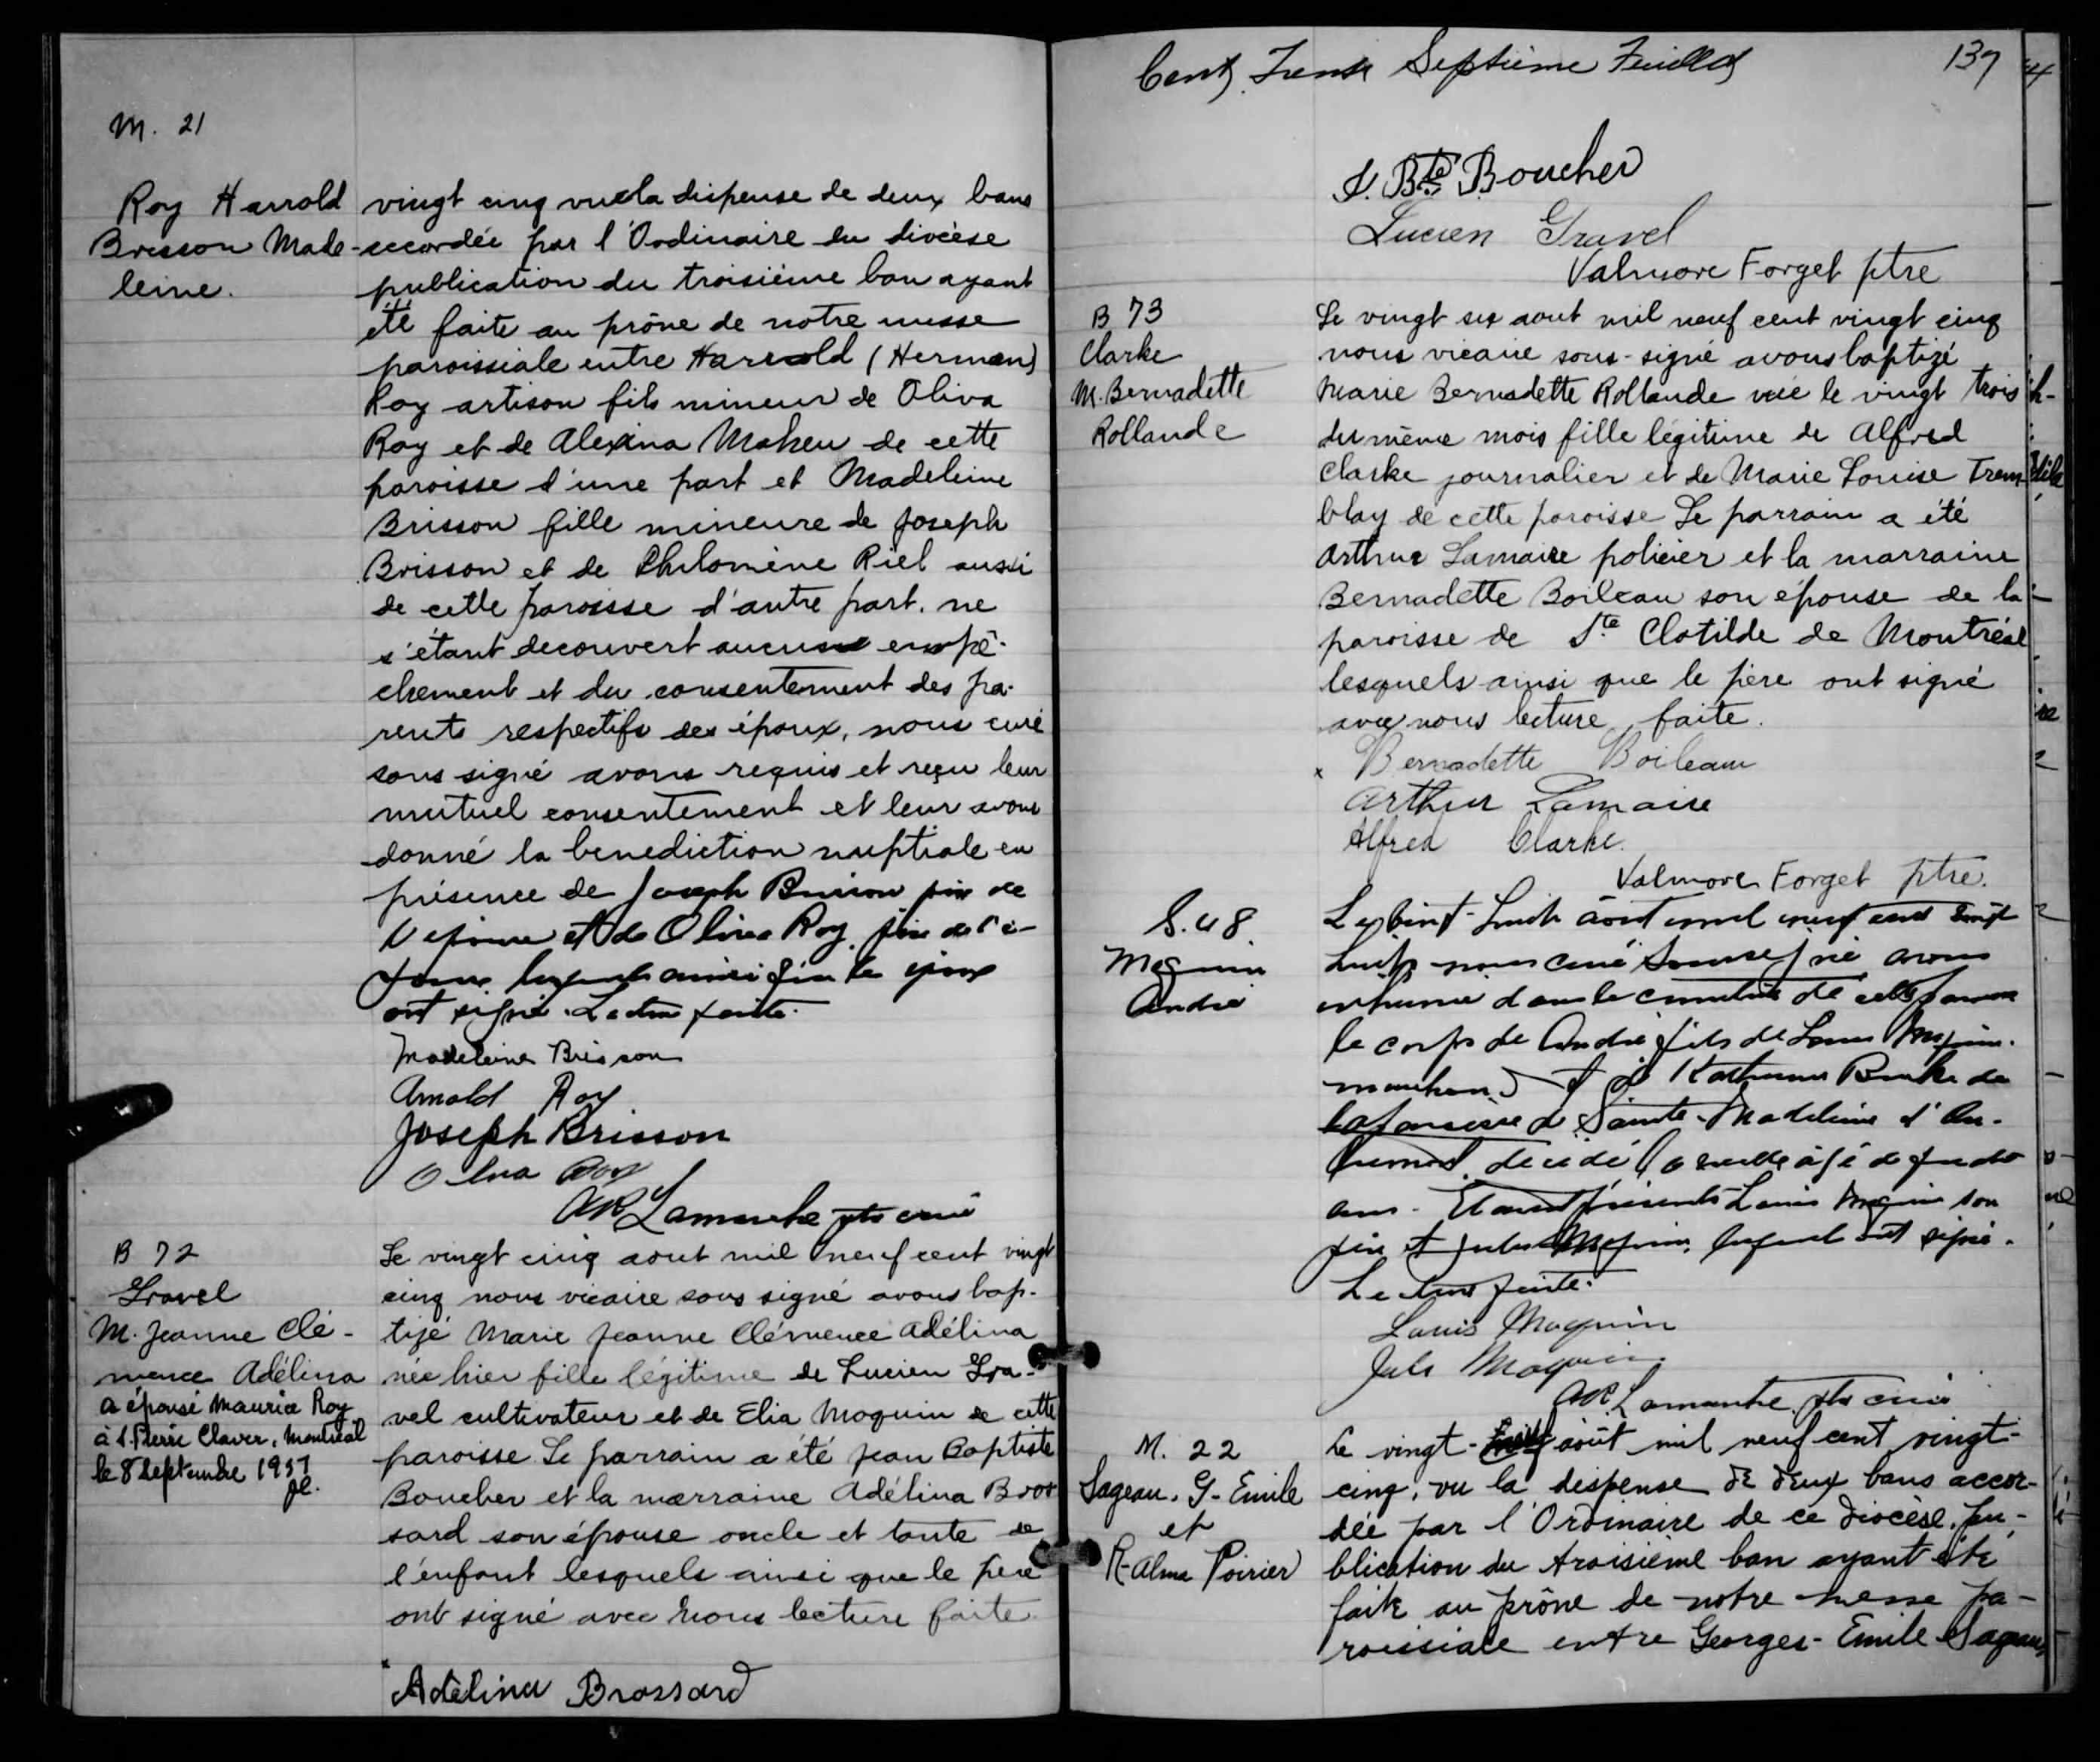 M. 21
Roy Harrold
Brisson Made-
leine.
vingt cinq vu la dispense de deux bans
accordée par l'Ordinaire du diocèse
publication du troisième ban ayant
été faite au prône de notre messe
paroissiale entre Harrold (Herman)
Roy artison fils mineur de Oliva
Roy et de Alexina Maheu de cette
paroisse d'une part et Madeleine
Brisson fille mineure de Joseph
Brisson et de Philomène Riel aussi
de cette paroisse d'autre part. ne
s'étant decouvert aucun empê-
chement et du consentement des pa-
rents respectifs des époux, nous curé
sous signé avons requis et reçu leur
mutuel consentement et leur avons
donné la benediction nuptiale en
présence de Joseph Brisson père de
l'épouse et de Oliva Roy père de l'é-
poux lesquels ainsi que les époux
ont signé. Lecture faite.
Madeleine Brisson
Arnold Roy
Joseph Brisson
Oliva Roy
AR Lamarche ptre curé
B 72
Gravel
M. Jeanne Clé-
mence Adélina
a épousé Maurice Roy
à S. Pierre Claver, Montréal
le 8 Septembre 1951
Le vingt cinq aout mil neuf cent vingt
cinq nous vicaire sous signé avons bap-
tizé Marie Jeanne Clémence Adélina
née hier fille légitime de Lucien Gra-
vel cultivateur et de Elia Moquin de cette
paroisse Le parrain a été Jean Baptiste
Boucher et la marraine Adélina Bros
sard son épouse oncle et tante de
l'enfant lesquels ainsi que le père
ont signé avec nous lecture faite.
Adélina Brossard
Cent Trente Septième Feuillet
137
J. Bte Boucher
Lucien Gravel
Valmore Forget ptre
B 73
Clarke
M. Bernadette
Rollande
Le vingt six aout mil neuf cent vingt cinq
nous vicaire sous-signé avons baptizé
Marie Bernadette Rollande née le vingt trois
du même mois fille légitime de Alfred
Clarke journalier et de Marie Louise Trem-
blay de cette paroisse Le parrain a été
Arthur Lamaire policier et la marraine
Bernadette Boileau son épouse de la
paroisse de Ste Clotilde de Montréal
lesquels ainsi que le père ont signé
avec nous lecture faite.
x Bernadette Boileau
Arthur Lamaire
Alfred Clarke.
Valmore Forget ptre.
S. 48
Moquin
André
Le vingt-huit août mil neuf cent vingt
nous curé soussigné avons
inhumé dans le cimetière de cette paroisse
le corps de André fils de Louis Moquin
marchand et de Burke de
la paroisse de Sainte-Madeleine d'Ou-
tremont décédé la veille âgé de
ans. Etaient présents Louis Moquin son
père et Jules Moquin lesquels ont signé.
Lecture faite.
Louis Moquin
Jules Moquin
AR Lamarche ptre curé
M. 22
Sageau, G-Emile
et
R-Alma Poirier
Le vingt- août mil neuf cent vingt-
cinq, vu la dispense de deux bans accor-
dée par l'Ordinaire de ce diocèse, pu-
blication du troisième ban ayant été
faite au prône de notre messe pa-
roissiale entre Georges-Emile Sageau,